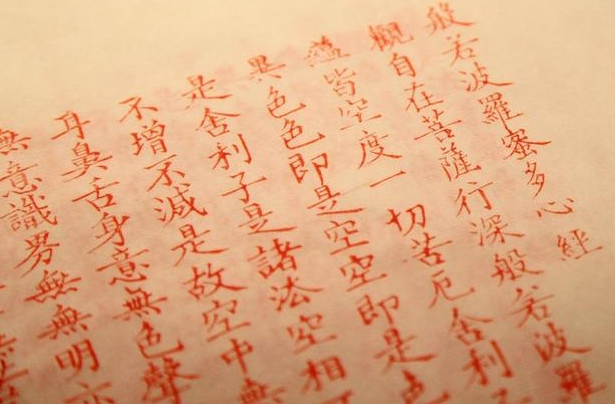 般若波羅蜜多心経
観自在菩薩行深般若波羅
蘊皆空度一切苦厄舍利子
異色色即是空空即是色
是舍利子是諸法空相不
不增不滅是故空中無
身鼻舌身意無色聲
無意識界無無明亦